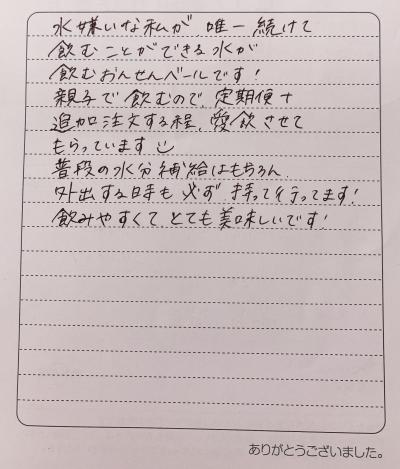 水嫌いな私が 唯一 続けて
飲むことができる水が
飲むおんせんベールです!
親子で飲むので、定期便+
追加注文する程、愛飲させて
もらっています
普段の水分補給はもちろん
外出する時も 必ず 持って行ってます!
飲みやすくて とても美味しいです!
ありがとうございました。